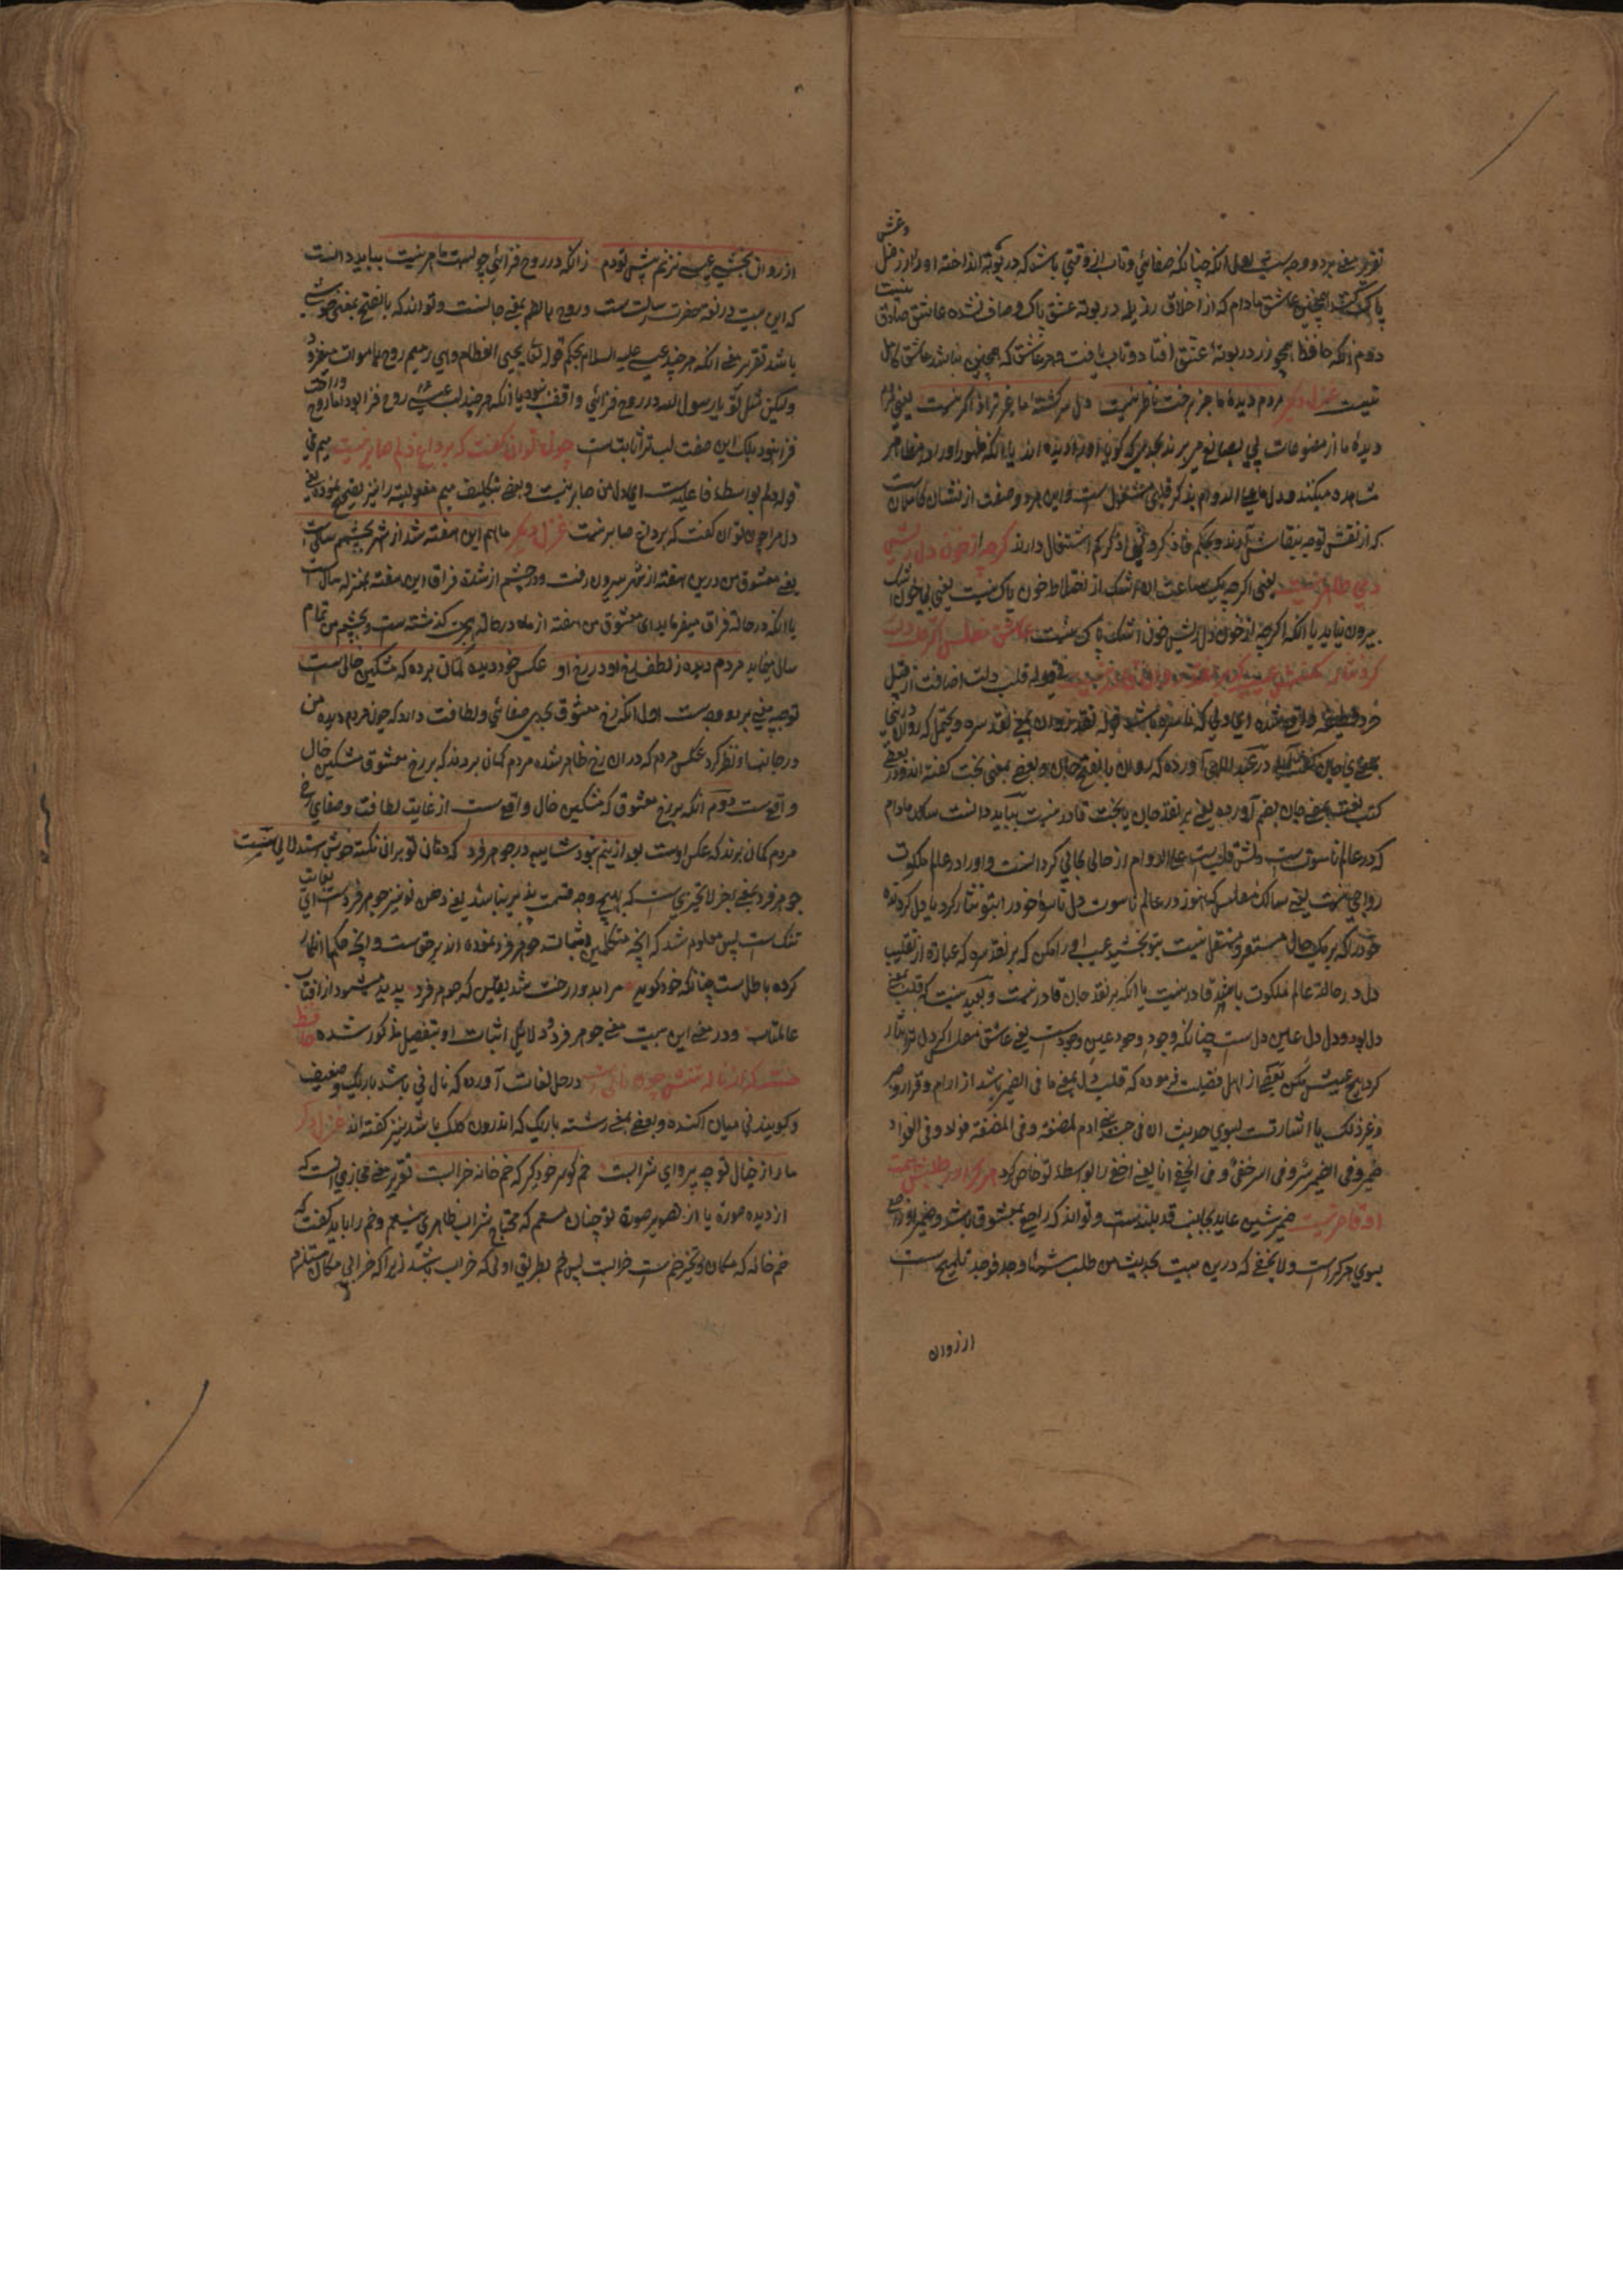 و غش
تقریر معنی بر دو وجه است اول آنکه چنانکه صفائی و تاب از وقتی باشد که در بوته انداخته او را از غل
پاک کنند همچنین عاشق مادام که از اخلاق رذیله در بوته عشق پاک و صاف نشده عاشق صادق نیست
دوم آنکه حافظ همچو زر در بوتهٔ عشق افتاد و تاب یافت و هر عاشق که همچنین نباشد عاشق کامل
نیست غزل دیگر مردم دیدهٔ ما جز برخت ناظر نیست دل سرگشتهٔ ما غیر ترا ذاکر نیست یعنی مردم
دیدهٔ ما از مصنوعات پی بصانع می برند بحدی که گویا او را دیده اند یا آنکه ظهور او را در مظاهر
مشاهده میکنند و دل ما علی الدوام بذکر قلبی مشغول است و این هر دو صفت از نشان کاملان است
که از نقش توجه بنقاش دارند و بحکم فاذکرونی اذکرکم اشتغال دارند گرچه از خون دل ریش
دمی طاهر نیست یعنی اگرچه یک ساعت اشک از اختلاط خون پاک نیست یعنی بی خون اشک
بیرون نیاید یا آنکه اگرچه از خون دل ریش خون اشک پاک نیست عاشق مفلس اگر قلب دلت
کرد نثار مکنش عیب که بر نقد روان قادر نیست قوله قلب دلت اضافت از قبیل
بمعنی جان در عبد اللهی آورده که روان بالفتح جان و بعضی بمعنی بخت گفته اند و در بعضی
کتب لغت بمعنی جان بضم آورده یعنی بر نقد جان یا بخت قادر نیست بباید دانست سالک مادام
که در عالم ناسوت است دلش قلب است علی الدوام از حالی بحالی گردانست و او را در عالم ملکوت
رواجی نیست یعنی سالک مفلس که هنوز در عالم ناسوت دل ناسره خود را بتو نثار کرد یا دل گردنده
خود را که بر یک حال مستقر و مستقل نیست بتو بخشید عیب او را مکن که بر نقد سره که عبارة از تقلیب
دل در حالت عالم ملکوت باشد قادر نیست یا آنکه بر نقد جان قادر نیست و بعید نیست که قلب بمعنی
دل بود و دل دل عین دل است چنانکه وجود وجود عین وجود است یعنی عاشق مفلس اگر دل تو نثار
کرد هیچ عیبش مکن بعضی از اهل فضیلت فرموده که قلب دل بمعنی ما فی الضمیر باشد از آرام و قرار و صبر
و غیر ذلک یا اشارتست بسوی حدیث ان فی جسد بنی ادم لمضغة و فی المضغة فواد و فی الفواد
ضمیر و فی الضمیر سر و فی السر خفی و فی الخفی انا یعنی اخفی را بواسطهٔ تو خاص کرد هر که را در طلبش همت
او قاصر نیست ضمیر شین عاید بجانب قد بلند است و تواند که راجع بمعشوق باشد و ضمیر او راجع
بسوی هر که را است و لا یخفی که درین بیت بحدیث من طلب شیئا وجد فوجد تلمیح است
از روان
از روان بخشی عیسی نزنم پیش تو دم زانکه در روح فزائی چو لبت ماهر نیست بباید دانست
که این بیت در نعت حضرت رسالت است و روح بالضم بمعنی جانست و تواند که بالفتح بمعنی خوشی
باشد تقریر معنی آنکه هر چند عیسی علیه السلام بحکم قوله تعالی یحیی العظام و هی رمیم روح بما موات میفزود
ولیکن مثل تو یا رسول الله در روح فزائی واقف نبود یا آنکه هر چند لب عیسی روح فزا بود اما روح و راحت
فزا نبود بلکه این صفت لب ترا ثابت است چون توان گفت که بر داغ دلم صابر نیست میم در
قوله دلم بواسطهٔ فاعلیت است ای دل من صابر نیست و بعضی بتکلیف میم مفعولیة را نیز تصحیح نموده یعنی
دل مرا چون توان گفت که بر داغ صابر نیست غزل دیگر ماهم این هفته شد از شهر بچشمم سالی است
یعنی معشوق من درین هفته از شهر بیرون رفت و در چشمم از شدت فراق این هفته بمنزله سال است
یا آنکه در حالة فراق میفرماید ای معشوق من هفته از ماه در حالة هجرت گذشته است و بچشم من تمام
سال مینماید مردم دیده ز لطف رخ او در رخ او عکس خود دیده گمان برده که مشکین خالی است
توجیه معنی بر دو وجه است اول آنکه رخ معشوق بحدی صفائی و لطافت دارد که چون مردم دیده من
در جانب او نظر کرد عکس مردم که در آن رخ ظاهر شده مردم گمان بردند که بر رخ معشوق مشکین خال
واقع است دوم آنکه بر رخ معشوق که مشکین خال واقع است از غایت لطافت و صفای رخ
مردم گمان برند که عکس اوست بعد ازینم نبود شایبه در جوهر فرد که دهان تو بران نکته خوش استدلالی است
جوهر فرد بمعنی جزء لا یتجزی است که بهیچ وجه قسمت پذیر نباشد یعنی دهن تو نیز جوهر فرد است ای بغایت
تنگ است پس معلوم شد که آنچه متکلمین اثبات جوهر فرد نموده اند بر حق است و آنچه حکما انکار
کرده باطل است چنانکه خود گوید مرا بدور رخت شد یقین که جوهر فرد پدید میشود از آفتاب
عالمتاب و در معنی این بیت معنی جوهر فرد و دلایل اثبات او بتفصیل مذکور شده حافظ
خسته که از ناله تنش چون نالی است در حل لغات آورده که نال نی باشد باریک و ضعیف
و گویند نی میان آگنده و بعضی بمعنی رشته باریک که اندرون کلک باشد نیز گفته اند غزل دیگر
ما را ز خیال تو چه پروای شرابست خم گو سر خود گیر که خم خانه خرابست تقریر معنی مجازی آنست که
از دیده صورة یا از تصویر صورة تو چنان مستم که محتاج شراب ظاهری نیستم و خم را باید گفت که
خم خانه که مکان و تحیز خم است خرابست پس خم بطریق اولی که خراب باشد زیرا که خرابی مکان مستلزم